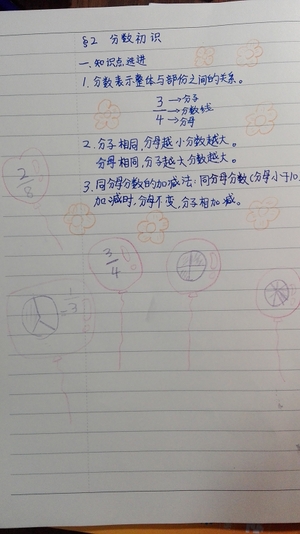 §2 分数初识
一.知识点迅进
1.分数表示整体与部份之间的关系。
3→分子
—→分数线
4→分母
2.分子相同,分母越小分数越大。
分母相同,分子越大分数越大。
3.同分母分数的加减法:同分母分数(分母小于10
加减时,分母不变,分子相加减。
2/8
3/4
1/3